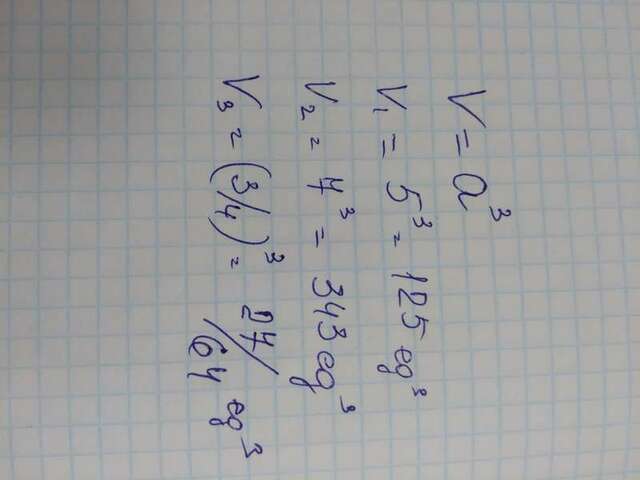 V = a³
V₁ = 5³ = 125 ед³
V₂ = 7³ = 343 ед³
V₃ = (3/4)³ = 27/64 ед³